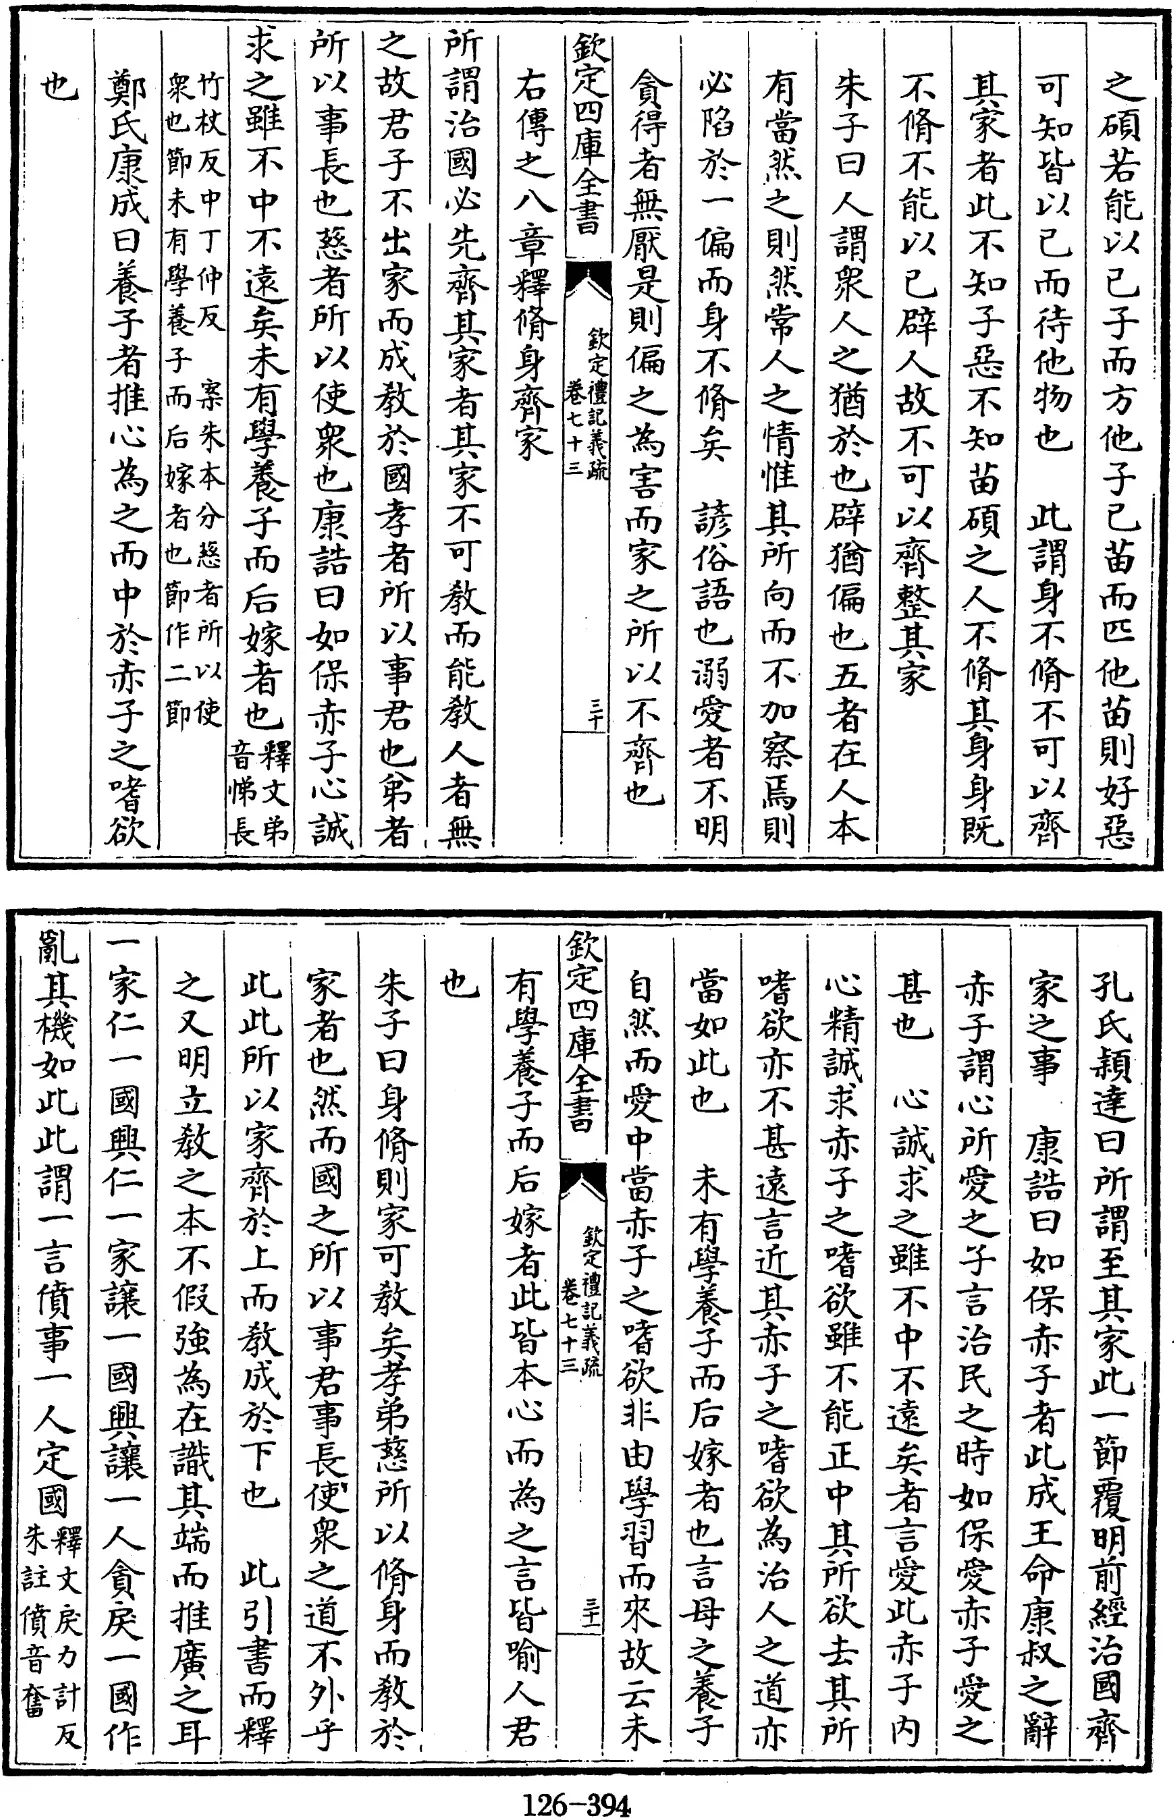 之碩若能以已子而方他子已苗而匹他苗則好惡
可知皆以已而待他物也　此謂身不脩不可以齊
其家者此不知子惡不知苗碩之人不脩其身身既
不脩不能以已辟人故不可以齊整其家
朱子曰人謂衆人之猶於也辟猶偏也五者在人本
有當然之則然常人之情惟其所向而不加察焉則
必陷於一偏而身不脩矣　諺俗語也溺愛者不明
貪得者無厭是則偏之為害而家之所以不齊也
欽定四庫全書
欽定禮記義疏
卷七十三
三十
右傳之八章釋脩身齊家
所謂治國必先齊其家者其家不可教而能教人者無
之故君子不出家而成教於國孝者所以事君也弟者
所以事長也慈者所以使衆也康誥曰如保赤子心誠
求之雖不中不遠矣未有學養子而后嫁者也
釋文弟
音悌長
竹杖反中丁仲反　案朱本分慈者所以使
衆也節未有學養子而后嫁者也節作二節
鄭氏康成曰養子者推心為之而中於赤子之嗜欲
也
孔氏穎達曰所謂至其家此一節覆明前經治國齊
家之事　康誥曰如保赤子者此成王命康叔之辭
赤子謂心所愛之子言治民之時如保愛赤子愛之
甚也　心誠求之雖不中不遠矣者言愛此赤子內
心精誠求赤子之嗜欲雖不能正中其所欲去其所
嗜欲亦不甚遠言近其赤子之嗜欲為治人之道亦
當如此也　未有學養子而后嫁者也言母之養子
自然而愛中當赤子之嗜欲非由學習而來故云未
欽定四庫全書
欽定禮記義疏
卷七十三
三十一
有學養子而后嫁者此皆本心而為之言皆喻人君
也
朱子曰身脩則家可教矣孝弟慈所以脩身而教於
家者也然而國之所以事君事長使衆之道不外乎
此此所以家齊於上而教成於下也　此引書而釋
之又明立教之本不假強為在識其端而推廣之耳
一家仁一國興仁一家讓一國興讓一人貪戾一國作
亂其機如此此謂一言僨事一人定國
釋文戾力計反
朱註僨音奮
126-394